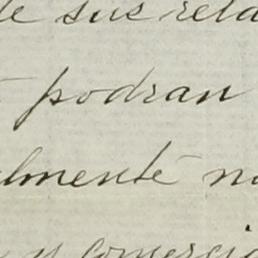 de sus rela
podran
lmente n
y comercia